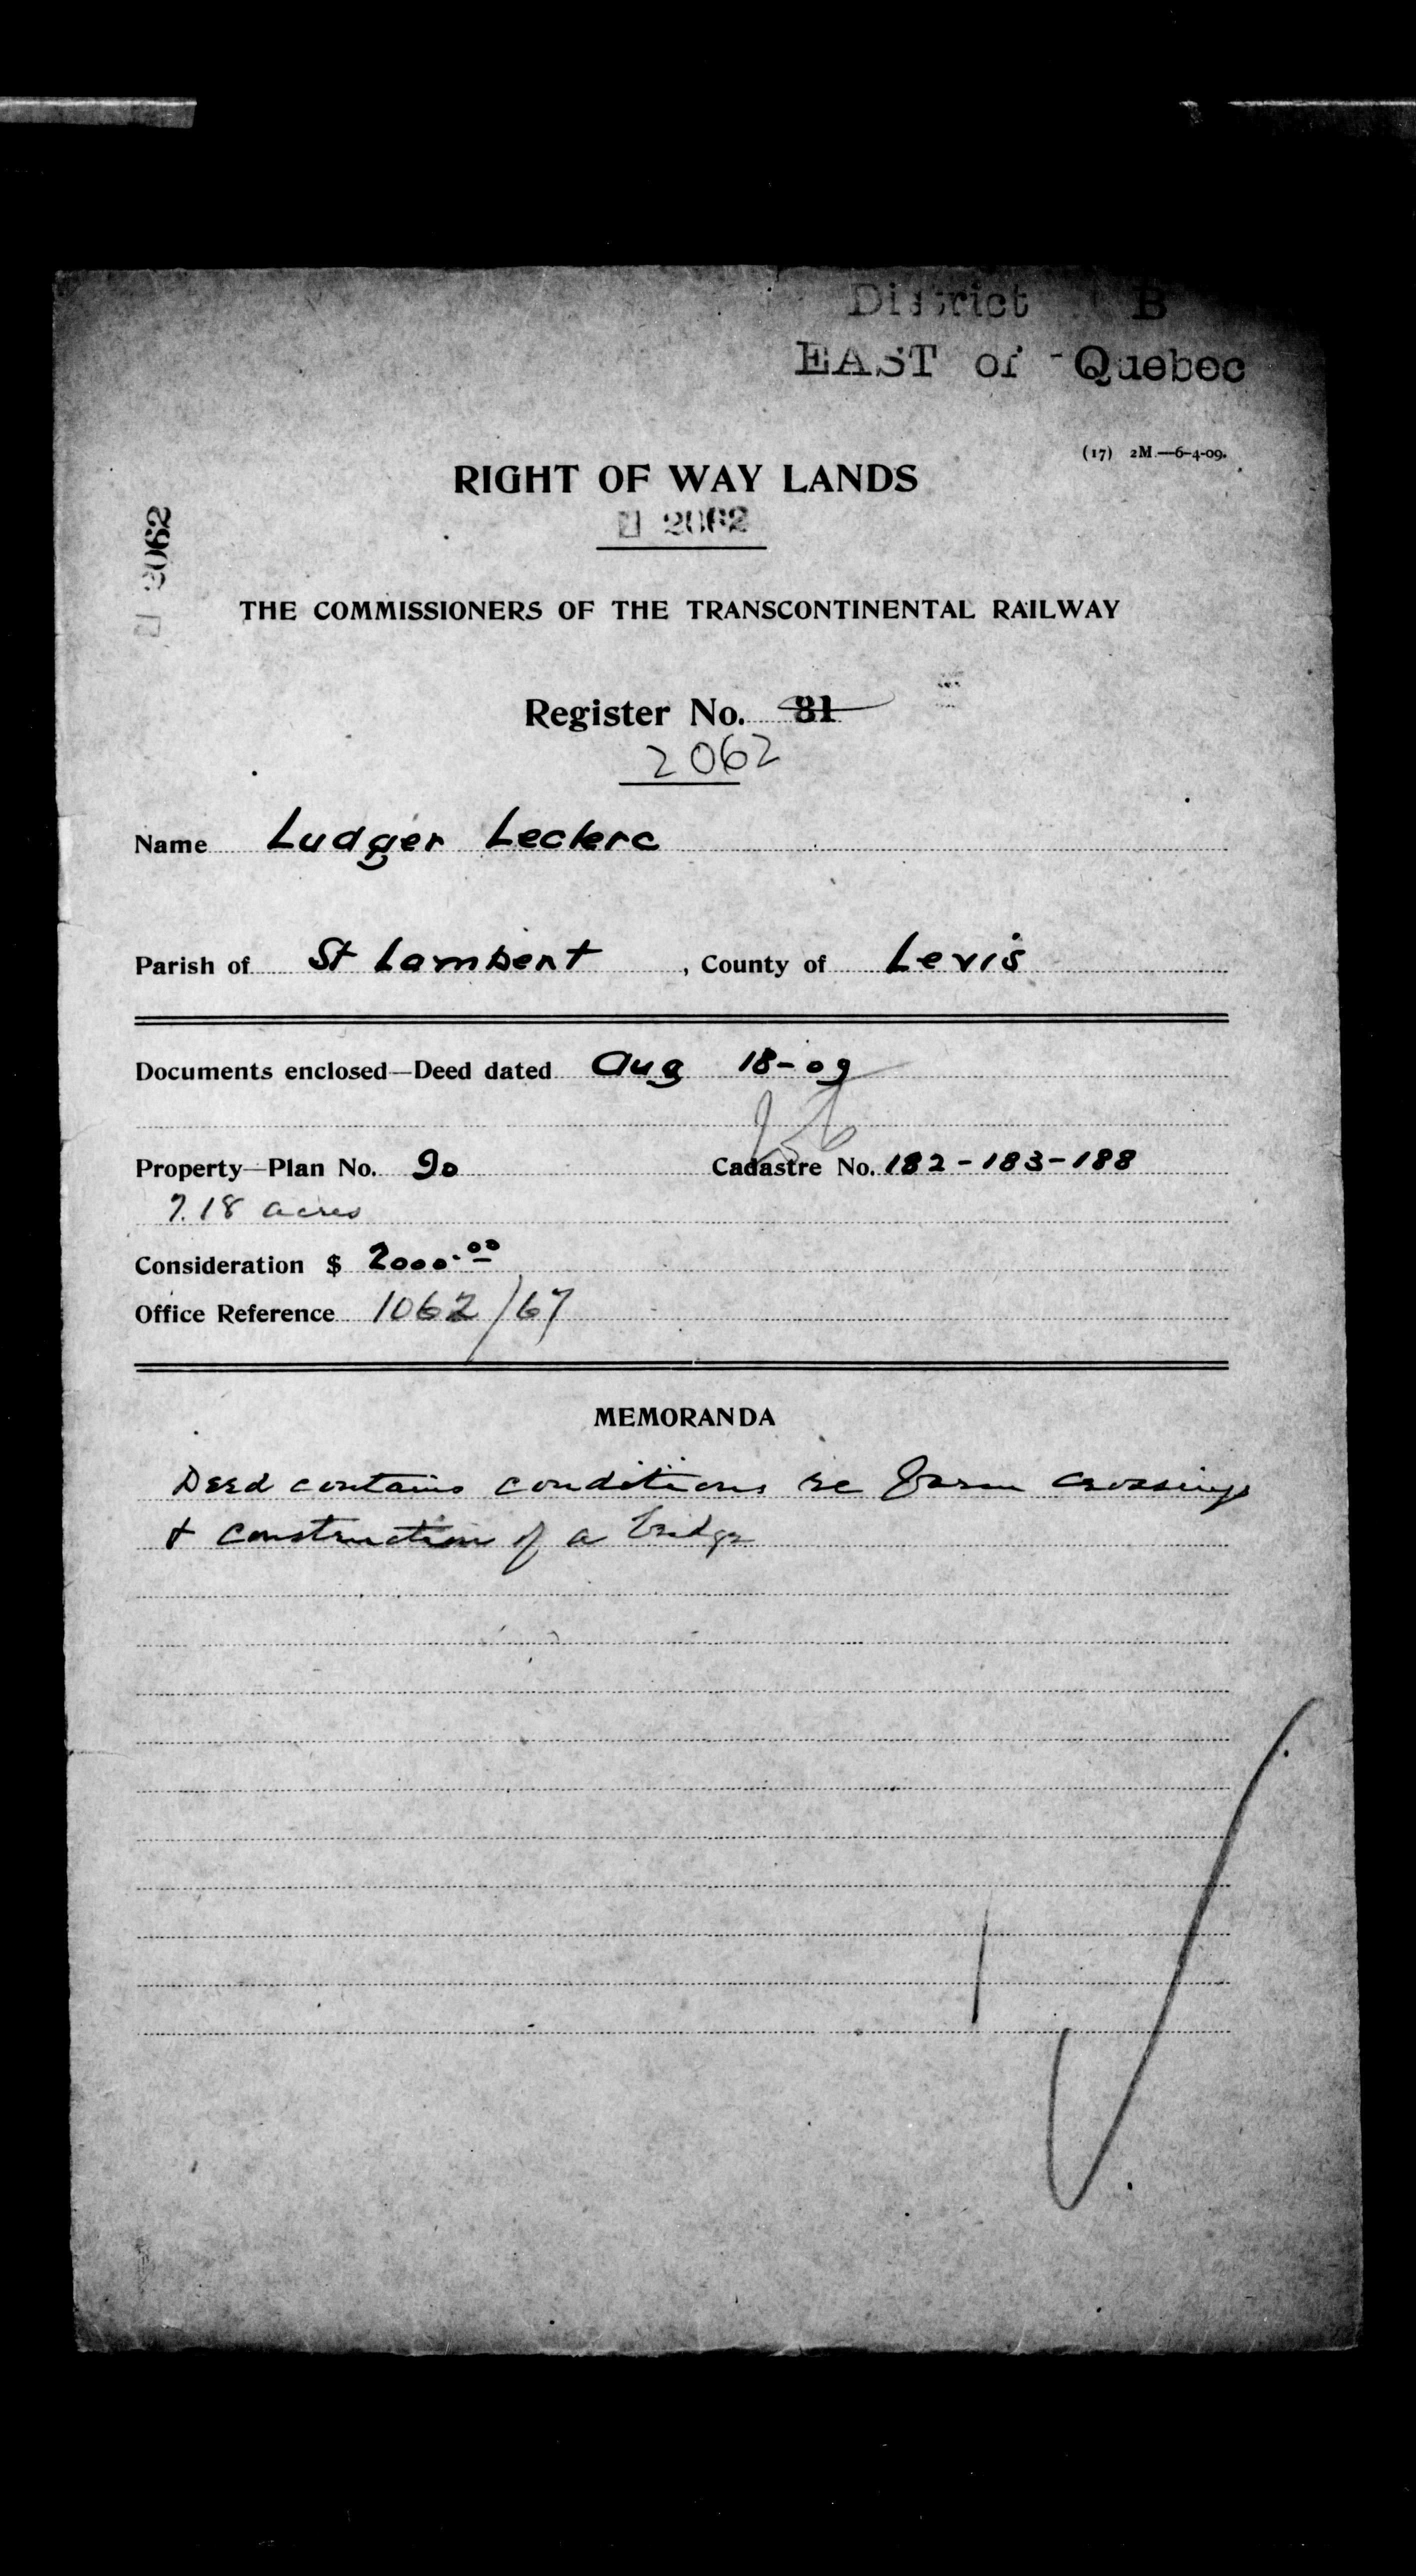 District B
EAST of Quebec
(17) 2M.—6-4-09.
RIGHT OF WAY LANDS
2062
2062
THE COMMISSIONERS OF THE TRANSCONTINENTAL RAILWAY
Register No. 81
2062
Name Ludger Leclerc
Parish of St Lambert, County of Levis
Documents enclosed—Deed dated Aug 18-09
Property—Plan No. 90 Cadastre No. 182-183-188
7.18 acres
Consideration $ 2000.00
Office Reference 1062/67
MEMORANDA
Deed contains conditions re farm crossings
& construction of a bridge